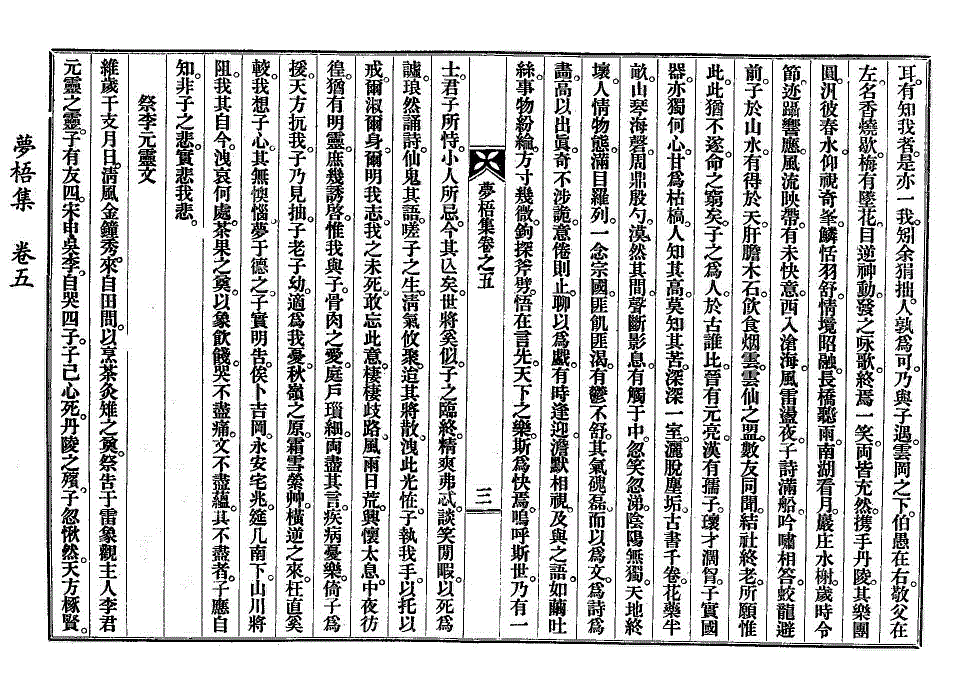 耳。有知我者。是亦一我。矧余狷拙。人孰為可。乃與子遇。雲岡之下。伯愚在右。敬父在
左。名香燒歇。梅有墜花。目逆神動。發之咏歌。終焉一笑。両皆充然。携手丹陵。其樂團
圓。汎彼春水。仰視奇峯。鱗恬羽舒。情境昭融。長橋聽雨。南湖看月。嚴庄水榭。歲時令
節。迹躡響應。風流映帶。有未快意。西入滄海。風雷盪夜。子詩滿船。吟嘯相答。蛟龍避
前。子於山水。有得於天。肝膽木石。飲食烟雲。雲仙之盟。數友同聞。結社終老。所願惟
此。此猶不遂。命之窮矣。子之為人。於古誰比。晉有元亮。漢有孺子。瓌才濶胷。子實國
器。亦獨何心。甘為枯槁。人知其高。莫知其苦。深深一室。灑脫塵垢。古書千卷。花藥半
畝。山琴海磬。周鼎殷勺。漠然其間。聲斷影息。有觸于中。忽笑忽涕。陰陽無獨。天地終
壞。人情物態。滿目羅列。一念宗國。匪飢匪渴。有鬱不舒。其氣磈磊。而以為文。為詩為
畵。高以出眞。奇不涉詭。意倦則止。聊以為戲。有時逢迎。澹默相視。及與之語。如繭吐
絲。事物紛綸。方寸幾微。鉤探斧劈。悟在言先。天下之樂。斯為快焉。嗚呼斯世。乃有一
夢梧集卷之五
三
士。君子所恃。小人所忌。今其亾矣。世將奚似。子之臨終。精爽弗忒。談笑閒暇。以死為
謔。琅然誦詩。仙鬼其語。嗟子之生。清氣攸聚。迨其將散。洩此光恠。子執我手。以托以
戒。爾淑爾身。爾明我志。我之未死。敢忘此意。棲棲歧路。風雨日荒。興懷太息。中夜彷
徨。猶有明靈。庶幾誘啓。惟我與子。骨肉之愛。庭戶瑣細。両盡其言。疾病憂樂。倚子為
援。天方抏我。子乃見抽。子老子幼。適為我憂。秋嶺之原。霜雪縈艸。橫逆之來。枉直奚
較。我想子心。其無懊惱。夢于德之。子實明告。俟卜吉岡。永安宅兆。筵几南下。山川將
阻。我其自今。洩哀何處。茶果之奠。以象飲餞。哭不盡痛。文不盡蘊。其不盡者。子應自
知。非子之悲。實悲我悲。
祭李元靈文
維歲干支月日。清風金鐘秀。來自田間。以烹茶灸雉之奠。祭告于雷象觀主人李君
元靈之靈。子有友四。宋申吳李。自哭四子。子己心死。丹陵之殯。子忽愀然。天方椓賢。
夢梧集　卷五